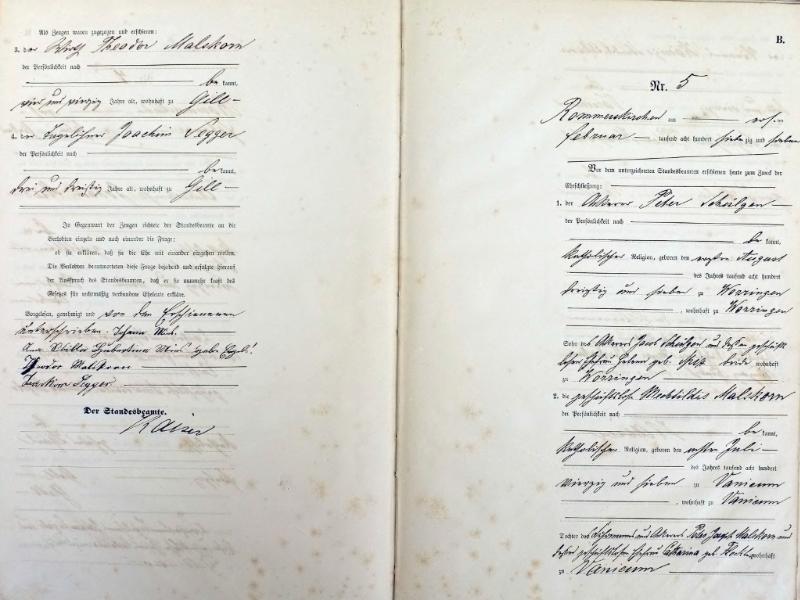 Als Zeugen waren zugezogen und erschienen:
3. der Wirth Theodor Malskorn
der Persönlichkeit nach
be kannt,
vier und vierzig Jahre alt, wohnhaft zu Gill
4. der Joachim Segger
der Persönlichkeit nach
be kannt,
drei und dreißig Jahre alt, wohnhaft zu Gill
In Gegenwart der Zeugen richtete der Standesbeamte an die
Verlobten einzeln und nach einander die Frage:
ob sie erklären, daß sie die Ehe mit einander eingehen wollen.
Die Verlobten beantworteten diese Frage bejahend und erfolgte hierauf
der Ausspruch des Standesbeamten, daß er sie nunmehr kraft des
Gesetzes für rechtmäßig verbundene Eheleute erkläre.
Vorgelesen, genehmigt und von den Erschienenen
unterschrieben. Johann
Hubertina
Theodor Malskorn
Joachim Segger
Der Standesbeamte.
Kaiser
B.
Nr. 5
Rommerskirchen am
Februar tausend acht hundert siebenzig und sieben
Vor dem unterzeichneten Standesbeamten erschienen heute zum Zweck der
Eheschließung:
1. der Ackerer Peter Scheilgen
der Persönlichkeit nach
be kannt,
katholischer Religion, geboren den August
des Jahres tausend acht hundert
dreißig und sieben zu Worringen
, wohnhaft zu Worringen
Sohn des Ackerers Jacob Scheilgen und dessen geschäft-
losen Ehefrau geb. beide wohnhaft
zu Worringen
2. die geschäftslose Mechtildis Malskorn
der Persönlichkeit nach
be kannt,
katholischer Religion, geboren den Juli
des Jahres tausend acht hundert
vierzig und sieben zu Vanicum
, wohnhaft zu Vanicum
Tochter des und Ackerers Peter Joseph Malskorn und
dessen geschäftslosen Ehefrau Catharina geb. wohnhaft
zu Vanicum